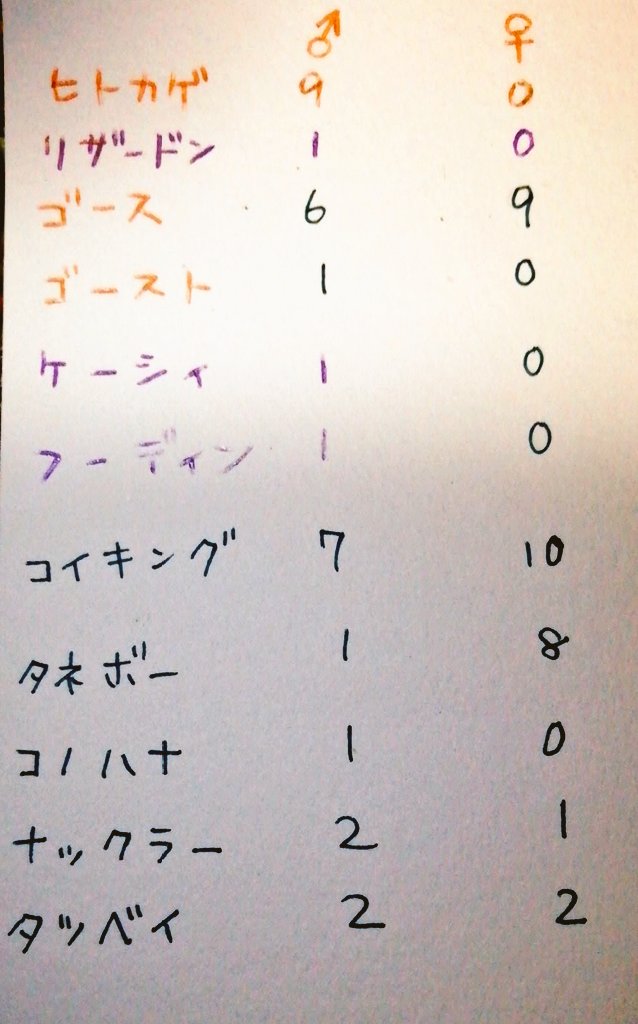 ♂ ♀
ヒトカゲ 9 0
リザードン 1 0
ゴース 6 9
ゴースト 1 0
ケーシィ 1 0
フーディン 1 0
コイキング 7 10
タネボー 1 8
コノハナ 1 0
ナックラー 2 1
タツベイ 2 2